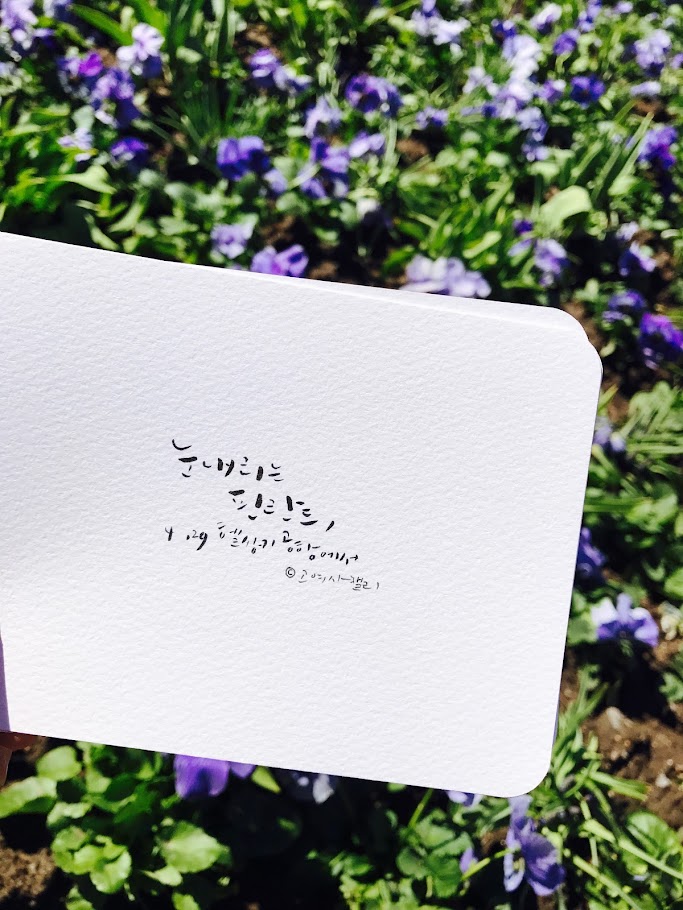 눈내리는
핀란드,
4.29 헬싱키 공항에서
©고여사캘리